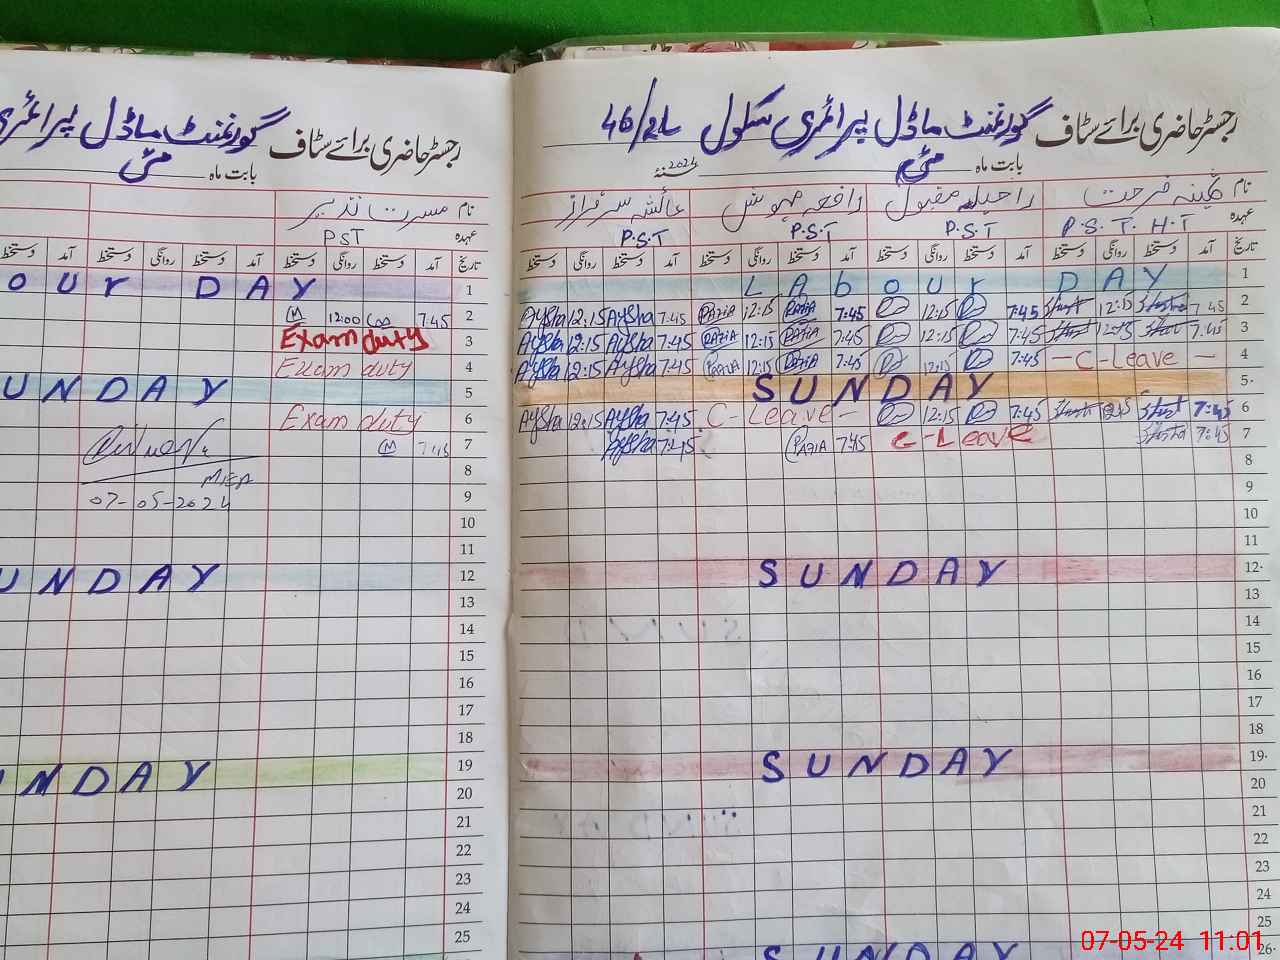 رجسٹر حاضری برائے سٹاف گورنمنٹ ماڈل پرائمری سکول 46/2L
بابت ماہ مئی 2024 سنہ
نام نگینہ فرحت راحیلہ مقبول رافعہ مہوش عائشہ سرفراز
عہدہ P.S.T. H.T P.S.T P.S.T P.S.T
تاریخ آمد دستخط روانگی دستخط آمد دستخط روانگی دستخط آمد دستخط روانگی دستخط آمد دستخط روانگی دستخط
1 LAbour DAY
2 7:45 12:15 7:45 12:15 7:45 RAZIA 12:15 RAZIA 7:45 AySha 12:15 AySha
3 7:45 12:15 7:45 12:15 7:45 RAZIA 12:15 RAZIA 7:45 AySha 12:15 AySha
4 - C-Leave - 7:45 12:15 7:45 RAZIA 12:15 RAZIA 7:45 AySha 12:15 AySha
5 SUNDAY
6 7:45 12:15 7:45 12:15 C-Leave- 7:45 AySha 12:15 AySha
7 7:45 C-Leave 7:45 RAZIA 7:45 AySha
8
9
10
11
12 SUNDAY
13
14
15
16
17
18
19 SUNDAY
20
21
22
23
24
25
26 SUNDAY
رجسٹر حاضری برائے سٹاف گورنمنٹ ماڈل پرائمری
بابت ماہ مئی
نام مسرت نذیر
عہدہ PST
تاریخ آمد دستخط روانگی دستخط آمد دستخط روانگی دستخط آمد
1 our DAY
2 7:45 12:00
3 Exam duty
4 Exam duty
5 UNDAY
6 Exam duty
7 7:45
8
9 07-05-2024
10
11
12 UNDAY
13
14
15
16
17
18
19 NDAY
20
21
22
23
24
25
07-05-24 11:01